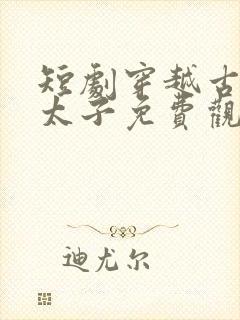 短劇穿越古
太子免費觀
迪尤尔